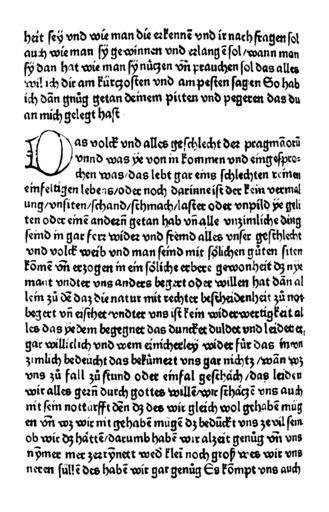 heit seÿ vnd wie man die erkennen vnd ir nach fragen sol
auch wie man sÿ gewinnen vnd erlangen sol/wann man
sÿ dan hat wie man sÿ nüczen vñ prauchen sol das alles
wil ich dir am kürczosten vnd am pesten sagen So hab
ich dañ gnůg getan deinem pitten vnd pegeren das du
an mich gelegt hast
Das volck vnd alles geschlecht der pragmãorũ
vnnd was ÿe von in kommen vnd eingespro⸗
chen was/das lebt gar eins schlechten reinen
einfeltigen lebens/oder noch darinne ist der kein vermal
ung/vnsiten/schand/schmach/laster oder vnpild ÿe geli
ten oder eine andern̄ getan hab vñ alle vnzimliche ding
seind in gar ferr wider vnd fremd alles vnser geschlecht
vnd volck weib vnd man seind mit sölichen gůten siten
kõmẽ vñ erzogen in ein söliche erbere gewonheit dz nÿe
mant vndter vns anders begert oder willen hat dañ al
lein zů dẽ daz die natur mit rechter bescheidenheit zů not
begert vñ eischet/vndter vns ist kein widerwertigkait al
les das ÿedem begegnet das duncket duldet vnd leidet er
gar williclich vnd wem einicherley wider für das im vn
zimlich bedeücht das bekümert vns gar nichtz/wañ wz
vns zů fall zů stund oder einfal geschäch/das leiden
wir alles gern̄ durch gottes willẽ/wir schäczẽ vns auch
mit sein notturfft den dz des wir gleich wol gehabẽ müg
en vñ wz wir mit gehabẽ mügẽ dz bedückt vns ze vil sein
ob wir dz hätten/darumb habẽ wir alzeit genůg vñ vns
nÿmer mer zerrÿnett wed klei noch groß wes wir vns
neren süllẽ des habẽ wir gar genůg Es kõmpt vns auch